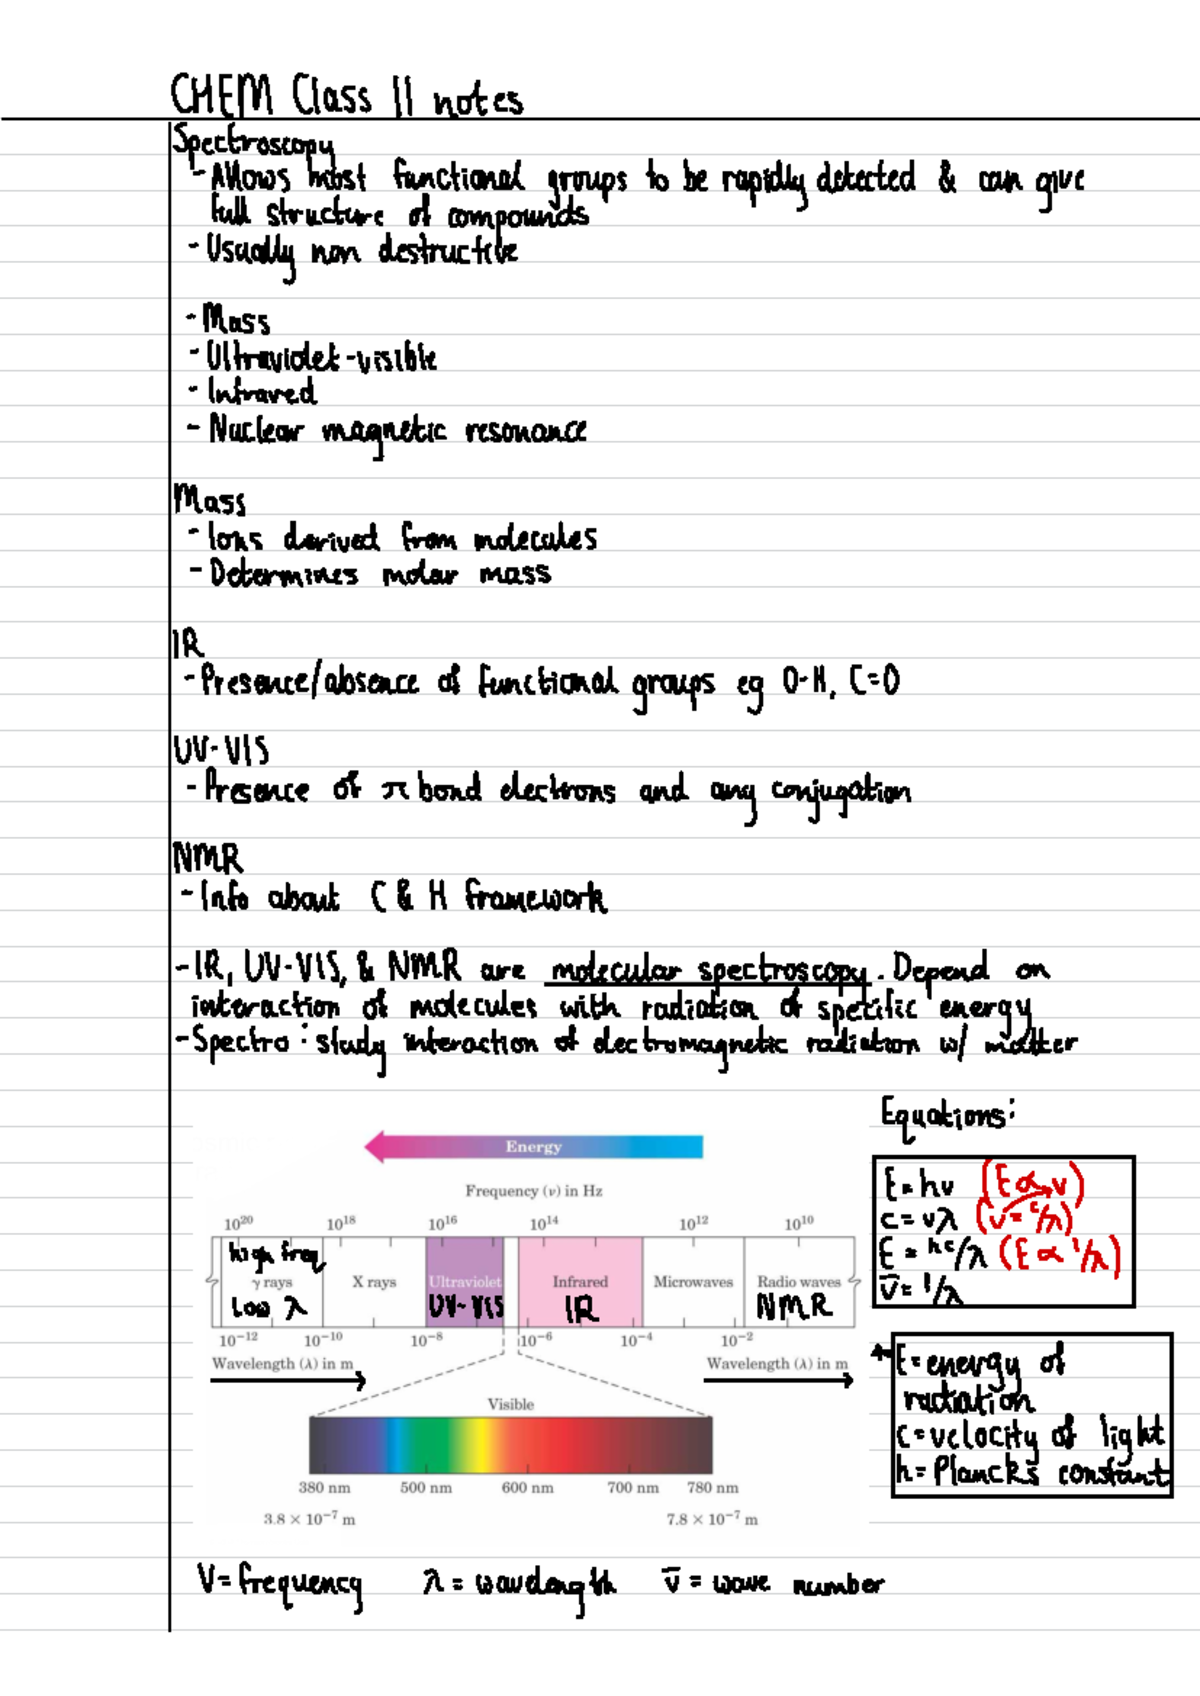 CHEM Class 11 notes
Spectroscopy
- Allows most functional groups to be rapidly detected & can give
full structure of compounds
- Usually non destructive
- Mass
- Ultraviolet-visible
- Infrared
- Nuclear magnetic resonance
Mass
- Ions derived from molecules
- Determines molar mass
IR
- Presence/absence of functional groups eg O-H, C=O
UV-VIS
- Presence of π bond electrons and any conjugation
NMR
- Info about C & H framework
- IR, UV-VIS, & NMR are molecular spectroscopy. Depend on
interaction of molecules with radiation of specific energy
- Spectro: study interaction of electromagnetic radiation w/ matter
Energy
Frequency (ν) in Hz
10²⁰ 10¹⁸ 10¹⁶ 10¹⁴ 10¹² 10¹⁰
high freq
γ rays X rays Ultraviolet Infrared Microwaves Radio waves
Low λ UV-VIS IR NMR
10⁻¹² 10⁻¹⁰ 10⁻⁸ 10⁻⁶ 10⁻⁴ 10⁻²
Wavelength (λ) in m Wavelength (λ) in m
Visible
380 nm 500 nm 600 nm 700 nm 780 nm
3.8 × 10⁻⁷ m 7.8 × 10⁻⁷ m
Equations:
E=hν (E∝ν)
c=νλ (ν=c/λ)
E=hc/λ (E∝1/λ)
ν̄=1/λ
E=energy of
radiation
c=velocity of light
h=Plancks constant
V=frequency λ=wavelength ν̄=wave number